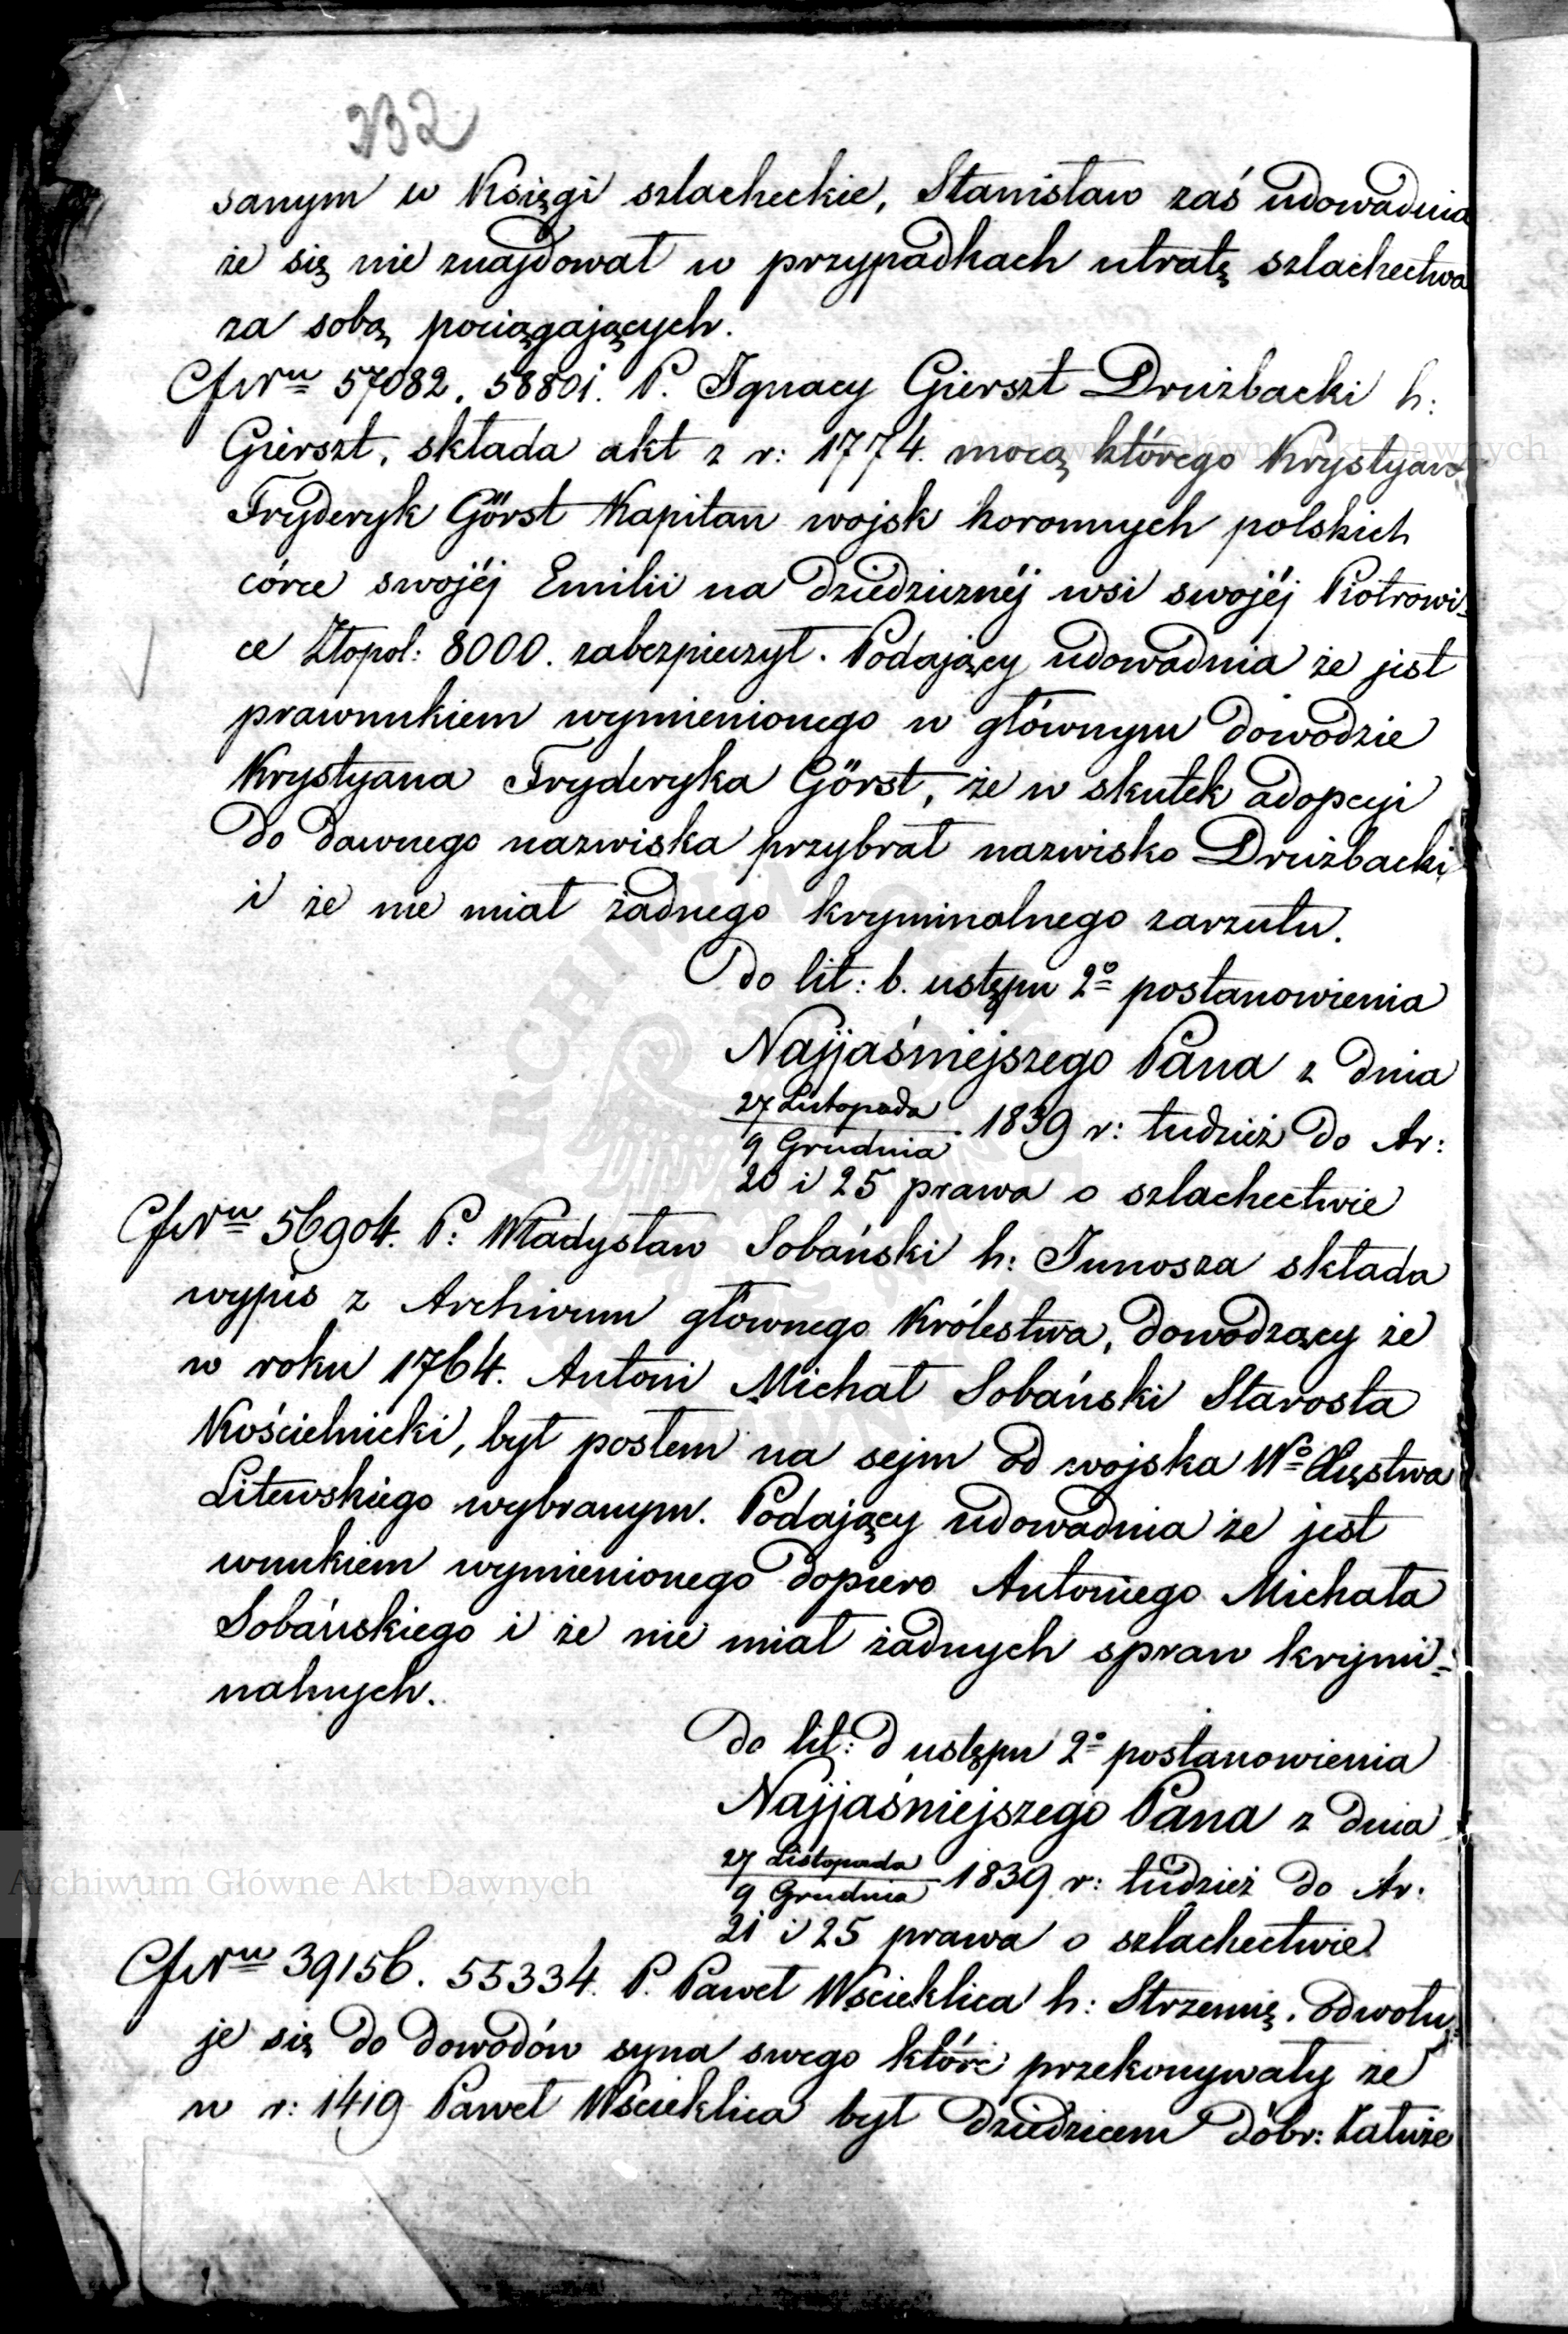 332
sanym w Księgi szlacheckie, Stanisław zaś udowadnia
że się nie znajdował w przypadkach utratę szlachectwa
za sobą pociągających.
57082. 58801. P. Ignacy Gierszt Drużbacki h:
Gierszt, składa akt z r: 1774. mocą którego Krystyan
Fryderyk Görst Kapitan wojsk koronnych polskich
córce swojéj Emilii na dziedzicznéj wsi swojéj Piotrowi=
ce Złopol: 8000. zabezpieczył. Podający udowadnia że jest
prawnukiem wymienionego w głównym dowodzie
Krystyana Fryderyka Görst, że w skutek adopcyi
do dawnego nazwiska przybrał nazwisko Drużbacki
i że nie miał żadnego kryminalnego zarzutu.
Do lit: b. ustępu 2º postanowienia
Najjaśniejszego Pana z dnia
27 Listopada
9 Grudnia 1839 r: tudzież do Ar:
20 i 25 prawa o szlachectwie
56904. P: Władysław Sobański h: Junosza składa
wypis z Archiwum głównego Królestwa, dowodzący że
w roku 1764. Antoni Michał Sobański Starosta
Kościelnicki, był posłem na sejm od wojska Wº Xięstwa
Litewskiego wybranym. Podający udowadnia że jest
wnukiem wymienionego dopiero Antoniego Michała
Sobańskiego i że nie miał żadnych spraw krymi=
nalnych.
Do lit: d ustępu 2º postanowienia
Najjaśniejszego Pana z dnia
27 Listopada
9 Grudnia 1839 r: tudzież do Ar.
21 i 25 prawa o szlachectwie.
39156. 55334. P. Paweł Wścieklica h: Strzemię. odwołu=
je się do dowodów syna swego które przekonywały że
w r: 1419 Paweł Wścieklica był dziedzicem dóbr: Kałuże
Archiwum Główne Akt Dawnych
Archiwum Główne Akt Dawnych